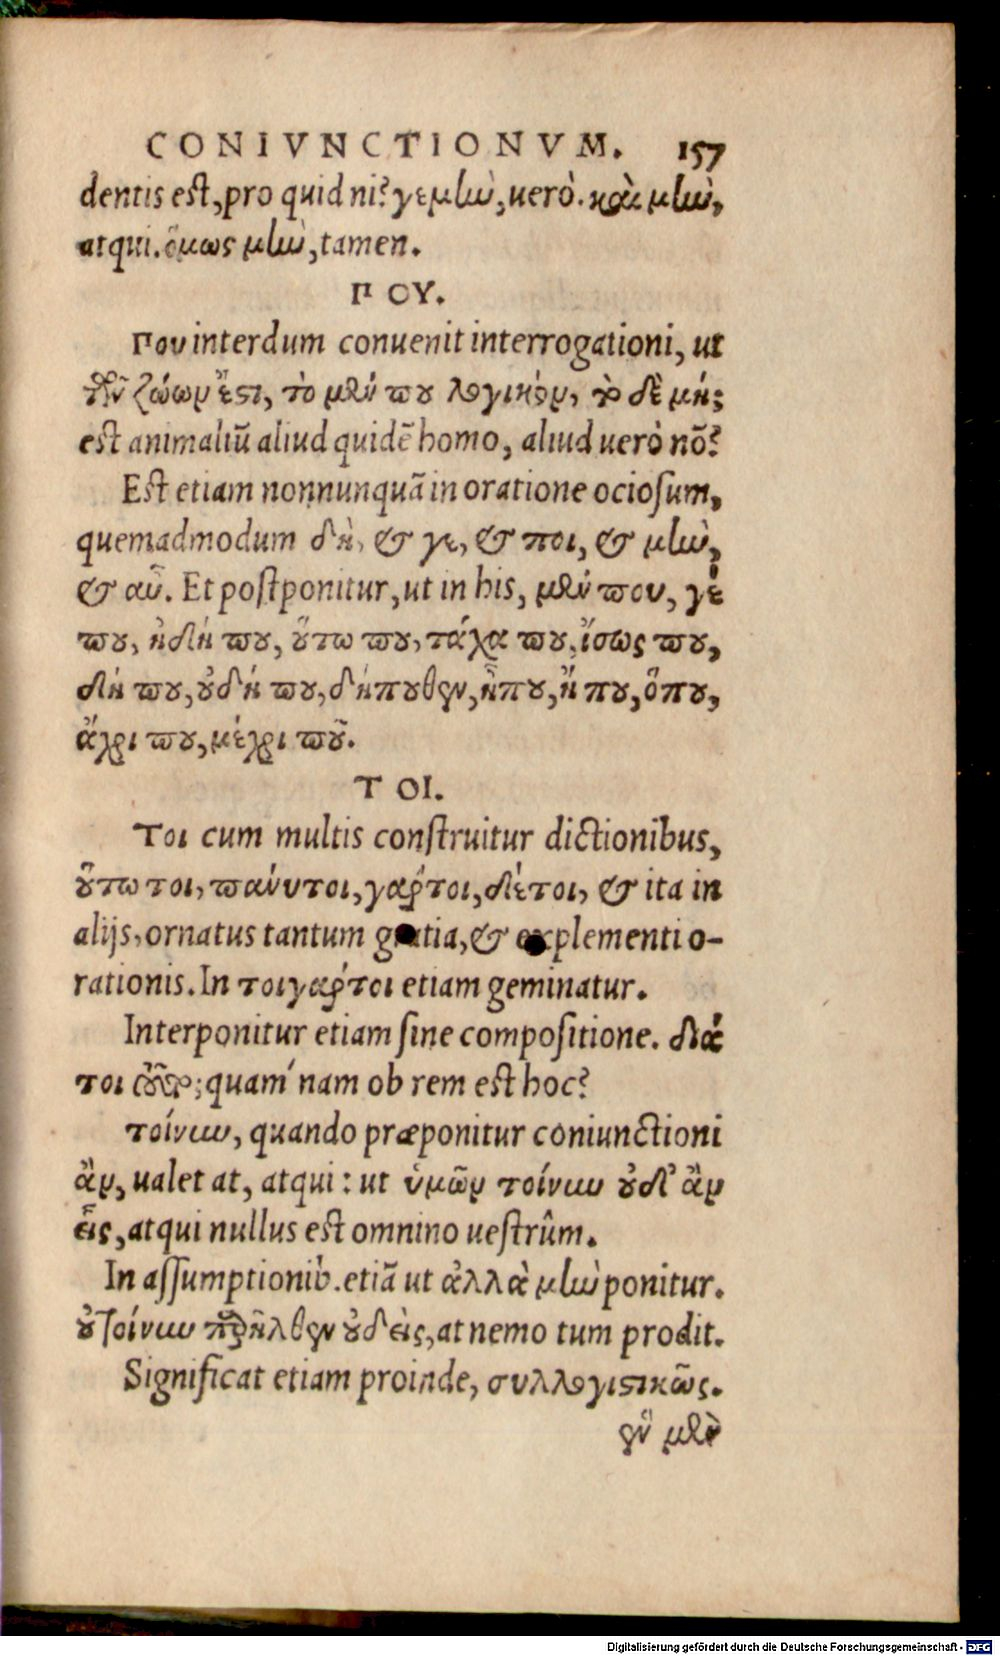 CONIVNCTIONVM. 157
dentis est, pro quid ni? γεμlὼ, uerò. καὶ μlὼ,
atqui. ὅμως μὴν, tamen.
ΠΟΥ.
Που interdum conuenit interrogationi, ut
τῶν ζώων ἔστι, τὸ μέν που λογικὸν, τὸ δὲ μή;
est animaliũ aliud quidẽ homo, aliud uerò nõ?
Est etiam nonnunquã in oratione ociosum,
quemadmodum δὴ, & γε, & ποι, & μὴν,
& αὖ. Et postponitur, ut in his, μέν που, γέ
που, ἠδή που, οὕτω που, τάχα που, ἴσως που,
δή που, οὐδή που, δήπουθεν, ἦπου, ἤ που, ὅπου,
ἄχρι που, μέχρι ποῦ.
ΤΟΙ.
Τοι cum multis construitur dictionibus,
οὕτω τοι, πάνυ τοι, γάρτοι, δέτοι, & ita in
alijs, ornatus tantum gratia, & explementi o-
rationis. In τοιγάρτοι etiam geminatur.
Interponitur etiam sine compositione. διά
τοι quam nam ob rem est hoc?
τοίνυν, quando præponitur coniunctioni
ἂν, ualet at, atqui: ut ὑμῶν τοίνυν οὐδ' ἂν
εἷς, atqui nullus est omnino uestrûm.
In assumptionib. etiã ut ἀλλὰ μὴν ponitur.
οὐ τοίνυν παρῆλθεν οὐδεὶς, at nemo tum prodit.
Significat etiam proinde, συλλογιστικῶς.
Digitalisierung gefördert durch die Deutsche Forschungsgemeinschaft - DFG